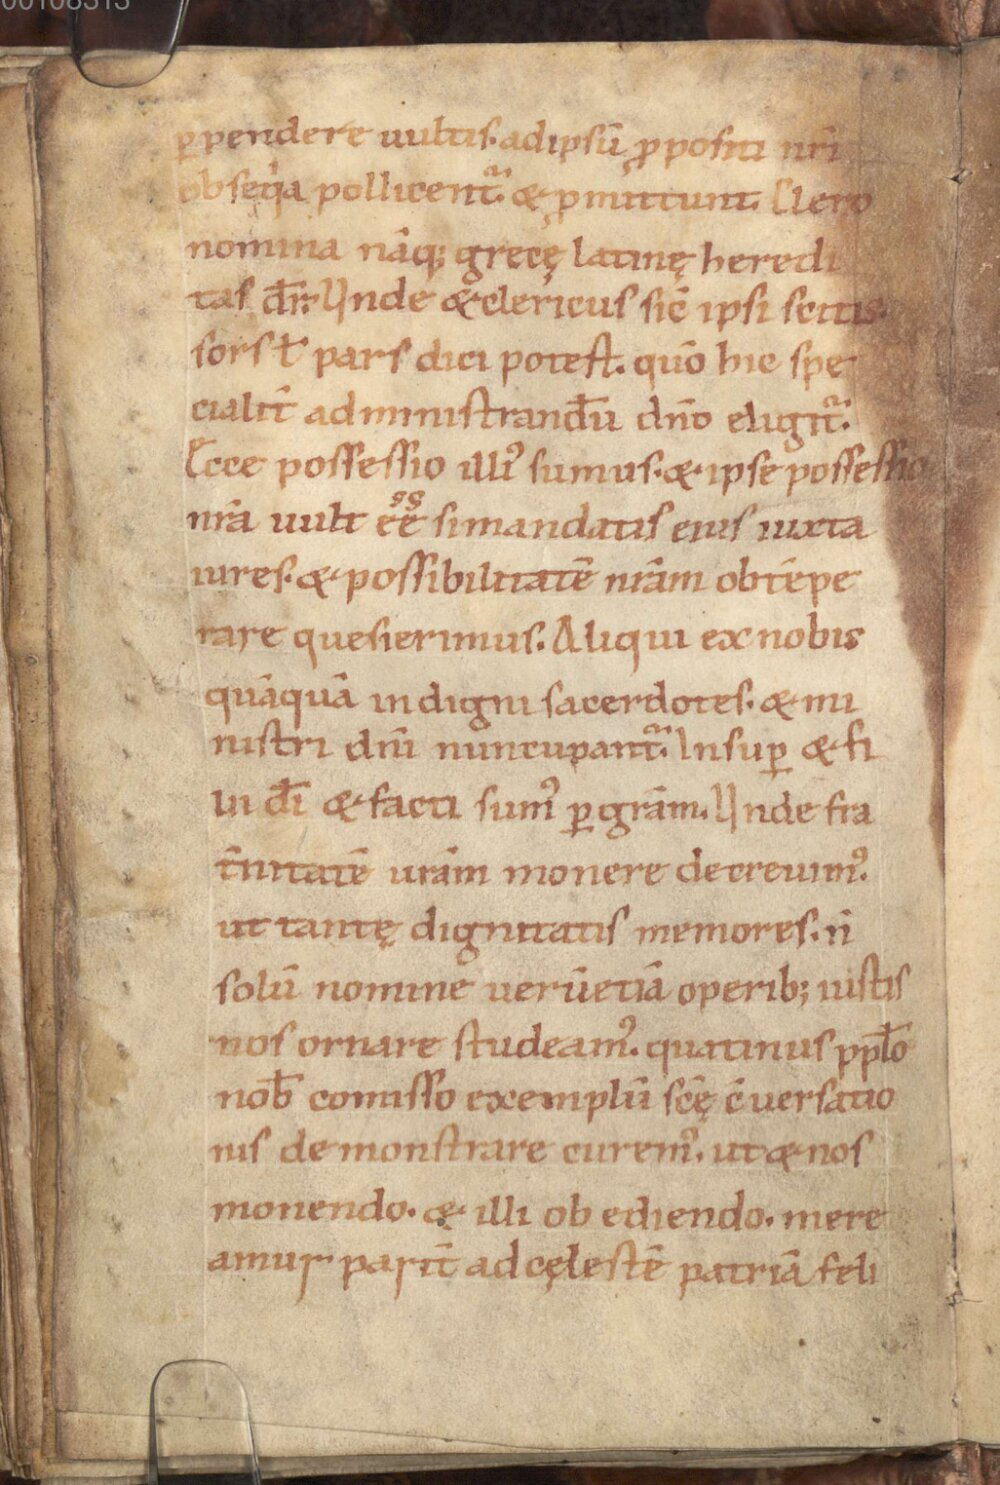 00108313
ꝑpendere uultis. ad ipsū ꝓpositi nr̄i
obseq̇a pollicent᷑. & ꝓmittunt. Clero
nomina nāq; grecę latinę heredi
tas dn̄i. Unde & clericus sic̄ ipsi scitis.
sors ł pars dici potest. quō hic spe
cialit̄ administrandū dn̄o eligit᷑.
Ecce possessio illi᷒ sumus. & ipse possessio
nr̄a uult ēē si mandatis eius iuxta
uires. & possibilitatē nr̄am obtēpe
rare quesierimus. Aliqui ex nobis
quāquā indigni sacerdotes. & mi
nistri dn̄i nuncupant᷑. Insuꝑ & fi
lii dī & facti sum᷒ ꝑ grām. Unde fra
t̄nitatē ur̄am monere decreuim᷒.
ut tantę dignitatis memores. n̄
solū nomine uerū etiā operib; iustis
nos ornare studeam᷒. quatinus ppl̄o
nob̄ comisso exemplū sc̄ę c̄uersatio
nis demonstrare curem᷒. ut & nos
monendo. & illi obediendo. mere
amur parit̄ ad cęlestē patriā feli